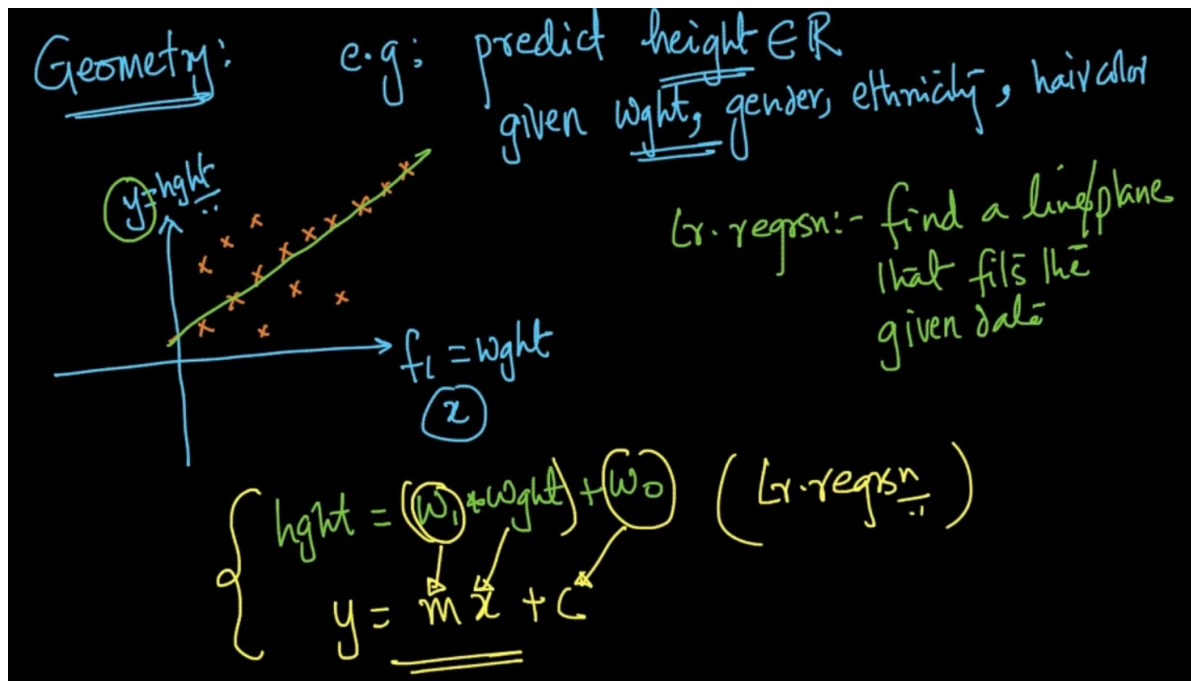 Geometry: e.g; predict height ∈ R
given wght, gender, ethnicity, haircolor
y=hght
Lr. regrsn:- find a line/plane
that fits the
given data
f1 = wght
x
hght = (w1 * wght) + w0 (Lr.regrsn)
y = mx + c